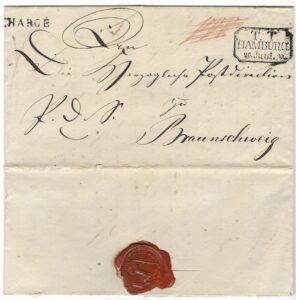 CHARGÉ
T. T.
HAMBURG
An
Die Herzogliche Postdirection
P. d. S. zu
Braunschweig